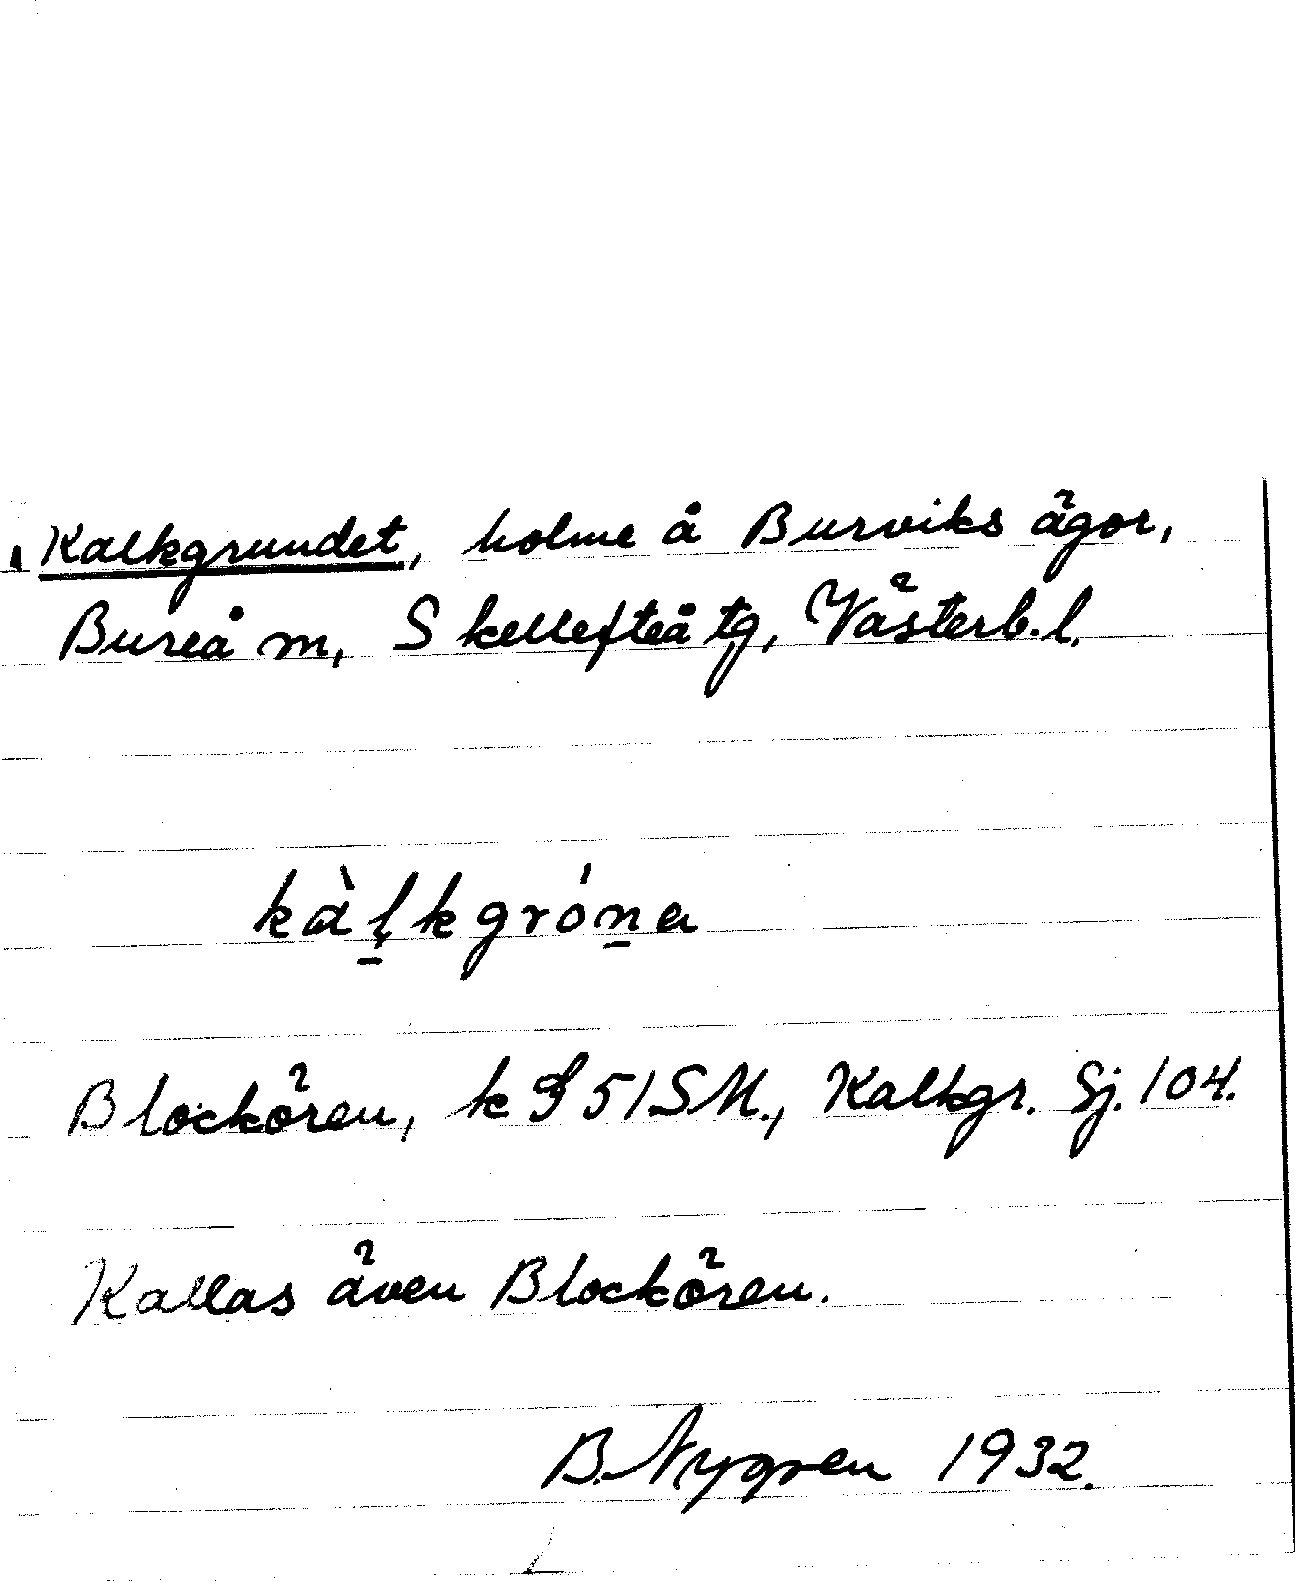 Kalkgrundet, holme å Burviks ägor,
Bureå m, Skellefteå tg, Västerb. l.
kàl̠kgrón̠a
Blockören, k G 51SM., Kalkgr. Sj. 104.
Kallas även Blockören.
B. Nygren 1932.